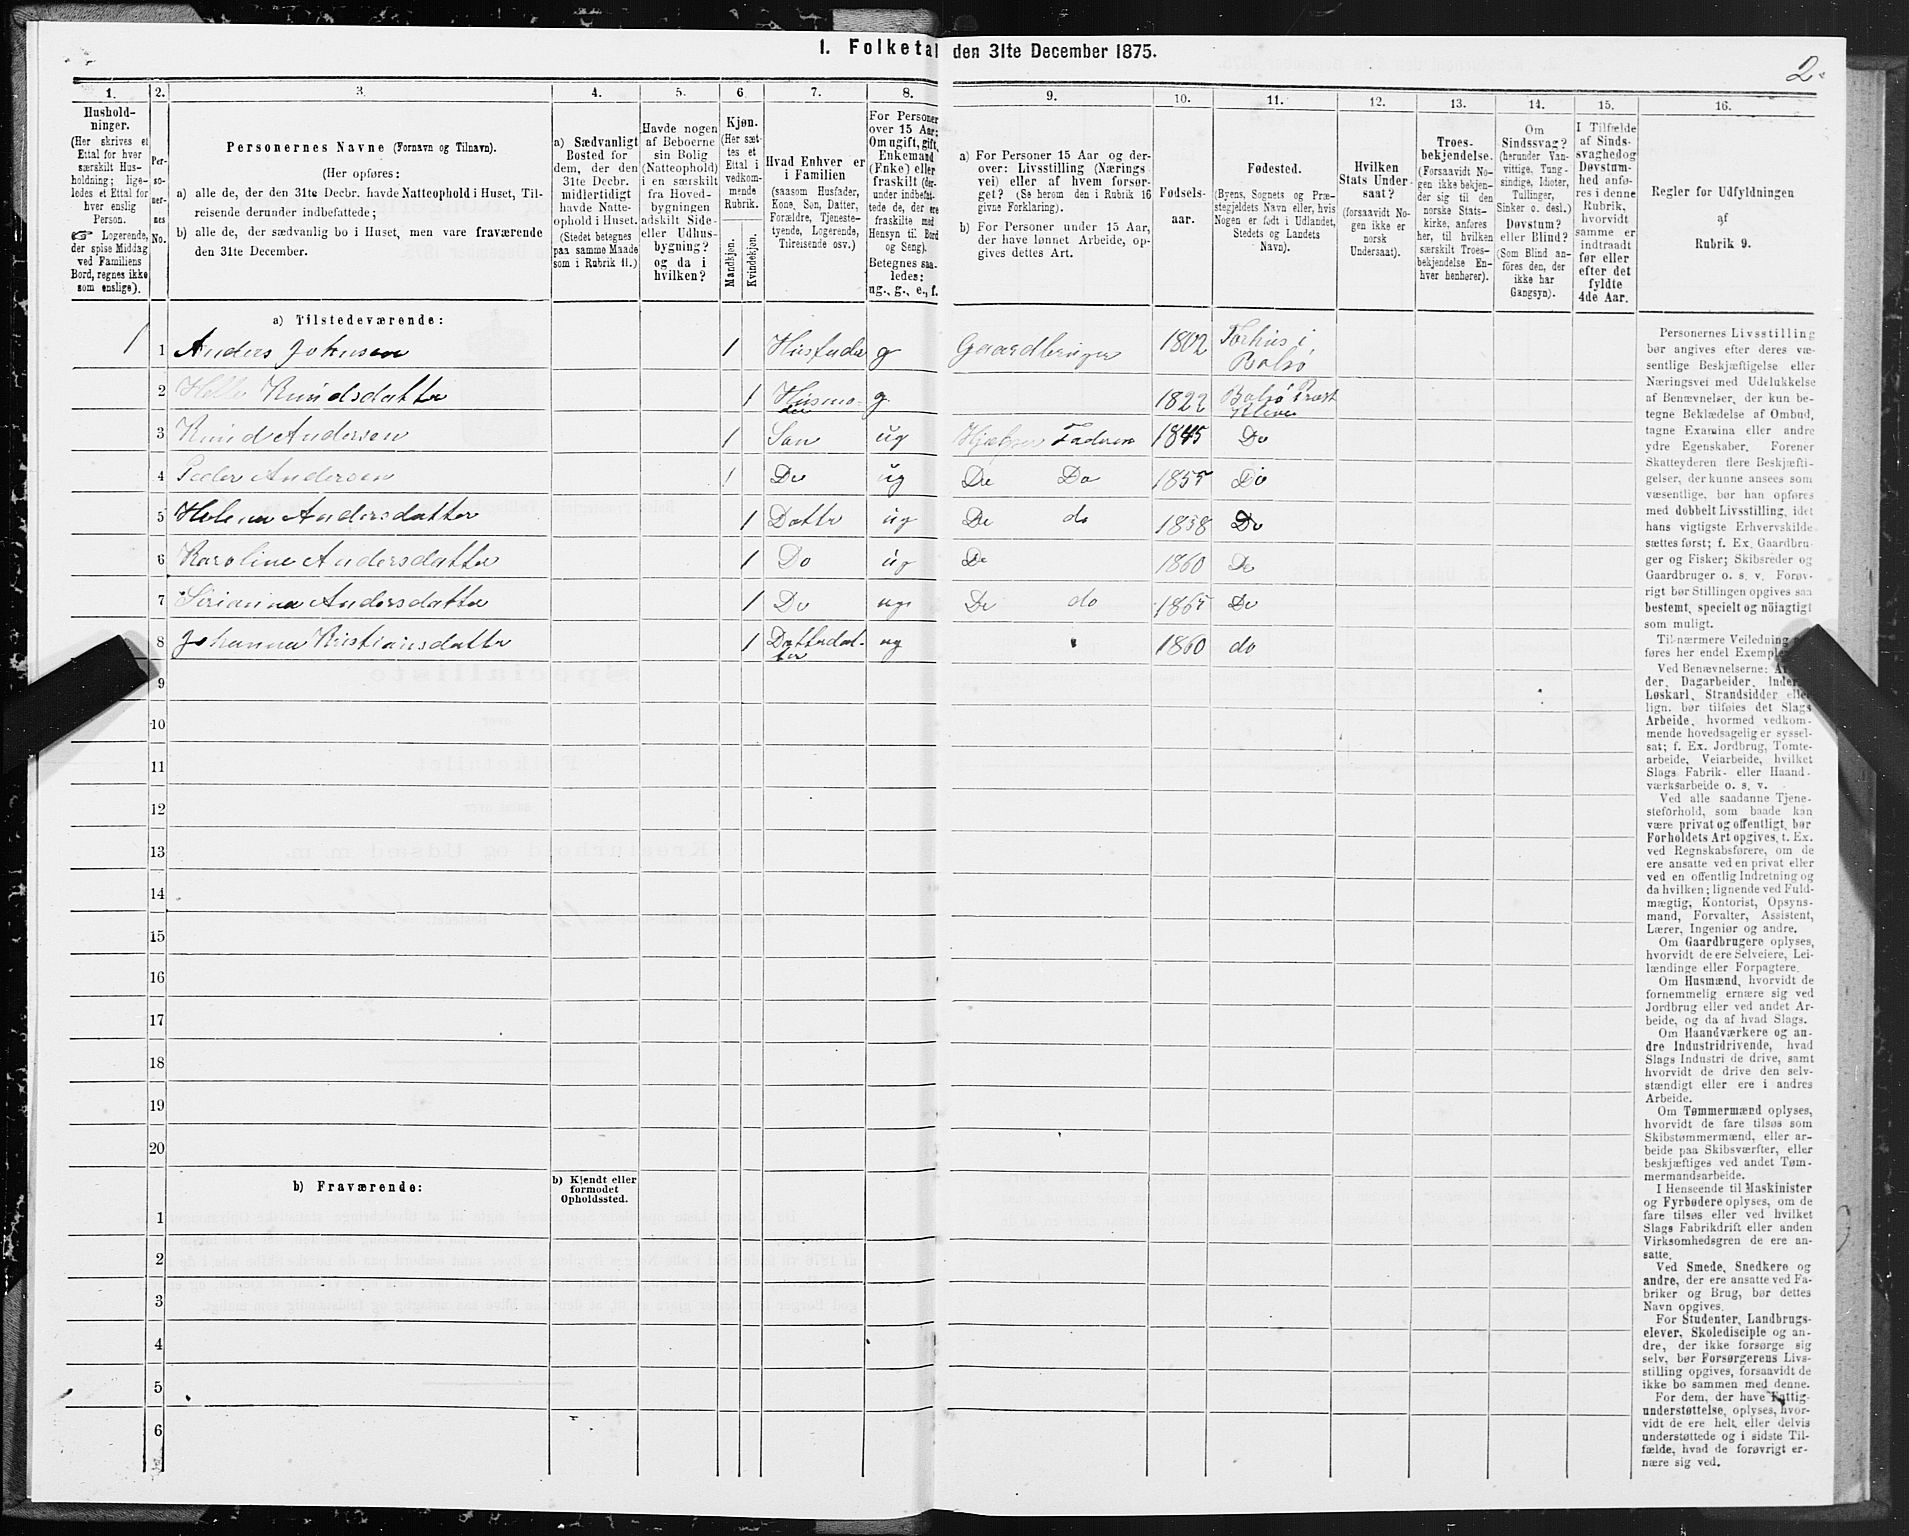 1. Folketal den 31te December 1875.
2.
1. 2. 3. 4. 5. 6. 7. 8. 9. 10. 11. 12. 13. 14. 15. 16.
Hushold-
ninger.
(Her skrives et
Ettal for hver
særskilt Hus-
holdning; lige-
ledes et Ettal for
hver enslig
Person.
☞ Logerende,
der spise Middag
ved Familiens
Bord, regnes ikke
som enslige).
Per-
so-
ner-
nes
No.
Personernes Navne (Fornavn og Tilnavn).
(Her opføres:
a) alle de, der den 31te Decbr. havde Natteophold i Huset, Til-
reisende derunder indbefattede;
b) alle de, der sædvanlig bo i Huset, men vare fraværende
den 31te December.
a) Sædvanligt
Bosted for
dem, der den
31te Decbr.
midlertidigt
havde Natte-
ophold i Huset.
(Stedet betegnes
paa samme Maade
som i Rubrik 11.)
Havde nogen
af Beboerne
sin Bolig
(Natteophold)
i en særskilt
fra Hoved-
bygningen
adskilt Side-
eller Udhus-
bygning?
og da i
hvilken?
Kjøn.
(Her sæt-
tes et
Ettal i
vedkom-
mende
Rubrik.
Mandkjøn.
Kvindekjøn.
Hvad Enhver er
i Familien
(saasom Husfader,
Kone, Søn, Datter,
Forældre, Tjeneste-
tyende, Logerende,
Tilreisende osv.)
For Personer
over 15 Aar:
Om ugift, gift,
Enkemand
(Enke) eller
fraskilt (der-
under indbefat-
tede de, der ere
fraskilte med
Hensyn til Bord
og Seng).
Betegnes saa-
ledes:
ug., g., e., f.
a) For Personer 15 Aar og der-
over: Livsstilling (Nærings-
vei) eller af hvem forsør-
get? (Se herom den i Rubrik 16
givne Forklaring).
b) For Personer under 15 Aar,
der have lønnet Arbeide, op-
gives dettes Art.
Fødsels-
aar.
Fødested.
(Byens, Sognets og Præ-
stegjeldets Navn eller, hvis
Nogen er født i Udlandet,
Stedets og Landets
Navn).
Hvilken
Stats Under-
saat?
(forsaavidt No-
gen ikke er
norsk
Undersaat).
Troes-
bekjendelse.
(Forsaavidt No-
gen ikke bekjen-
der sig til den
norske Stats-
kirke, anføres
her, til hvilken
særskilt Troes-
bekjendelse En-
hver henhører).
Om
Sindssvag?
(herunder Van-
vittige, Tung-
sindige, Idioter,
Tullinger,
Sinker o. desl.)
Døvstum?
eller Blind?
(Som Blind an-
føres den, der
ikke har
Gangsyn).
I Tilfælde
af Sinds-
svaghed og
Døvstum-
hed anfø-
res i denne
Rubrik,
hvorvidt
samme er
indtraadt
før eller
efter det
fyldte
4de Aar.
Regler for Udfyldningen
af
Rubrik 9.
a) Tilstedeværende:
1 1 Anders Johnsen 1 Husfader g Gaardbruger 1802 Forhus i
Balsø
2 Helle Knudsdatter 1 Husmo- g 1822 Balsø Præst
der
3 Knud Andersen 1 Søn ug Hjælper Faderen 1845 Do
4 Peder Andersen 1 Do ug Do Do 1855 Do
5 Helena Andersdatter 1 Datte ug Do do 1858 Do
6 Karoline Andersdatter 1 Do ug Do 1860 Do
7 Andersdatter 1 Do ug Do do 1865 Do
8 Johanna Kristiansdatter 1 Datterdat- ug " 1860 do
ter
9
10
11
12
13
14
15
16
17
18
19
20
b) Fraværende:
b) Kjendt eller
formodet
Opholdssted.
1
2
3
4
5
6
Personernes Livsstilling
bør angives efter deres væ-
sentlige Beskjæftigelse eller
Næringsvei med Udelukkelse
af Benævnelser, der kun be-
tegne Beklædelse af Ombud,
tagne Examina eller andre
ydre Egenskaber. Forener
Skatteyderen flere Beskjæfti-
gelser, der kunne ansees som
væsentlige, bør han opføres
med dobbelt Livsstilling, idet
hans vigtigste Erhvervskilde
sættes først; f. Ex. Gaardbru-
ger og Fisker; Skibsreder og
Gaardbruger o. s. v. Forøv-
rigt bør Stillingen opgives saa
bestemt, specielt og nöiagtigt
som muligt.
Til nærmere Veiledning
føres her endel
Ved Benævnelserne:
der, Dagarbeider,
Løskarl, Strandsidder eller
lign. bør tilføies det Slags
Arbeide, hvormed vedkom-
mende hovedsagelig er syssel-
sat; f. Ex. Jordbrug, Tomte-
arbeide, Veiarbeide, hvilket
Slags Fabrik- eller Haand-
værksarbeide o. s. v.
Ved alle saadanne Tjene-
steforhold, som baade kan
være privat og offentligt, bør
Forholdets Art opgives, t. Ex.
ved Regnskabsførere, om de
ere ansatte ved en privat eller
ved en offentlig Indretning og
da hvilken; lignende ved Fuld-
mægtig, Kontorist, Opsyns-
mand, Forvalter, Assistent,
Lærer, Ingeniør og andre.
Om Gaardbrugere oplyses,
hvorvidt de ere Selveiere, Lei-
lændinge eller Forpagtere.
Om Husmænd, hvorvidt de
fornemmelig ernære sig ved
Jordbrug eller ved andet Ar-
beide, og da af hvad Slags.
Om Haandværkere og an-
dre Industridrivende, hvad
Slags Industri de drive, samt
hvorvidt de drive den selv-
stændigt eller ere i andres
Arbeide.
Om Tømmermænd oplyses,
hvorvidt de fare tilsøs som
Skibstømmermænd, eller ar-
beide paa Skibsværfter, eller
beskjæftiges ved andet Tøm-
mermandsarbeide.
I Henseende til Maskinister
og Fyrbødere oplyses, om de
fare tilsøs eller ved hvilket
Slags Fabrikdrift eller anden
Virksomhedsgren de ere an-
satte.
Ved Smede, Snedkere og
andre, der ere ansatte ved Fa-
briker og Brug, bør dettes
Navn opgives.
For Studenter, Landbrugs-
elever, Skoledisciple og an-
dre, der ikke forsørge sig
selv, bør Forsørgerens Livs-
stilling opgives, forsaavidt de
ikke bo sammen med denne.
For dem, der have Fattig-
understøttelse, oplyses, hvor-
vidt de ere helt eller delvis
understøttede og i sidste Til-
fælde, hvad de forøvrigt er-
nære sig ved.